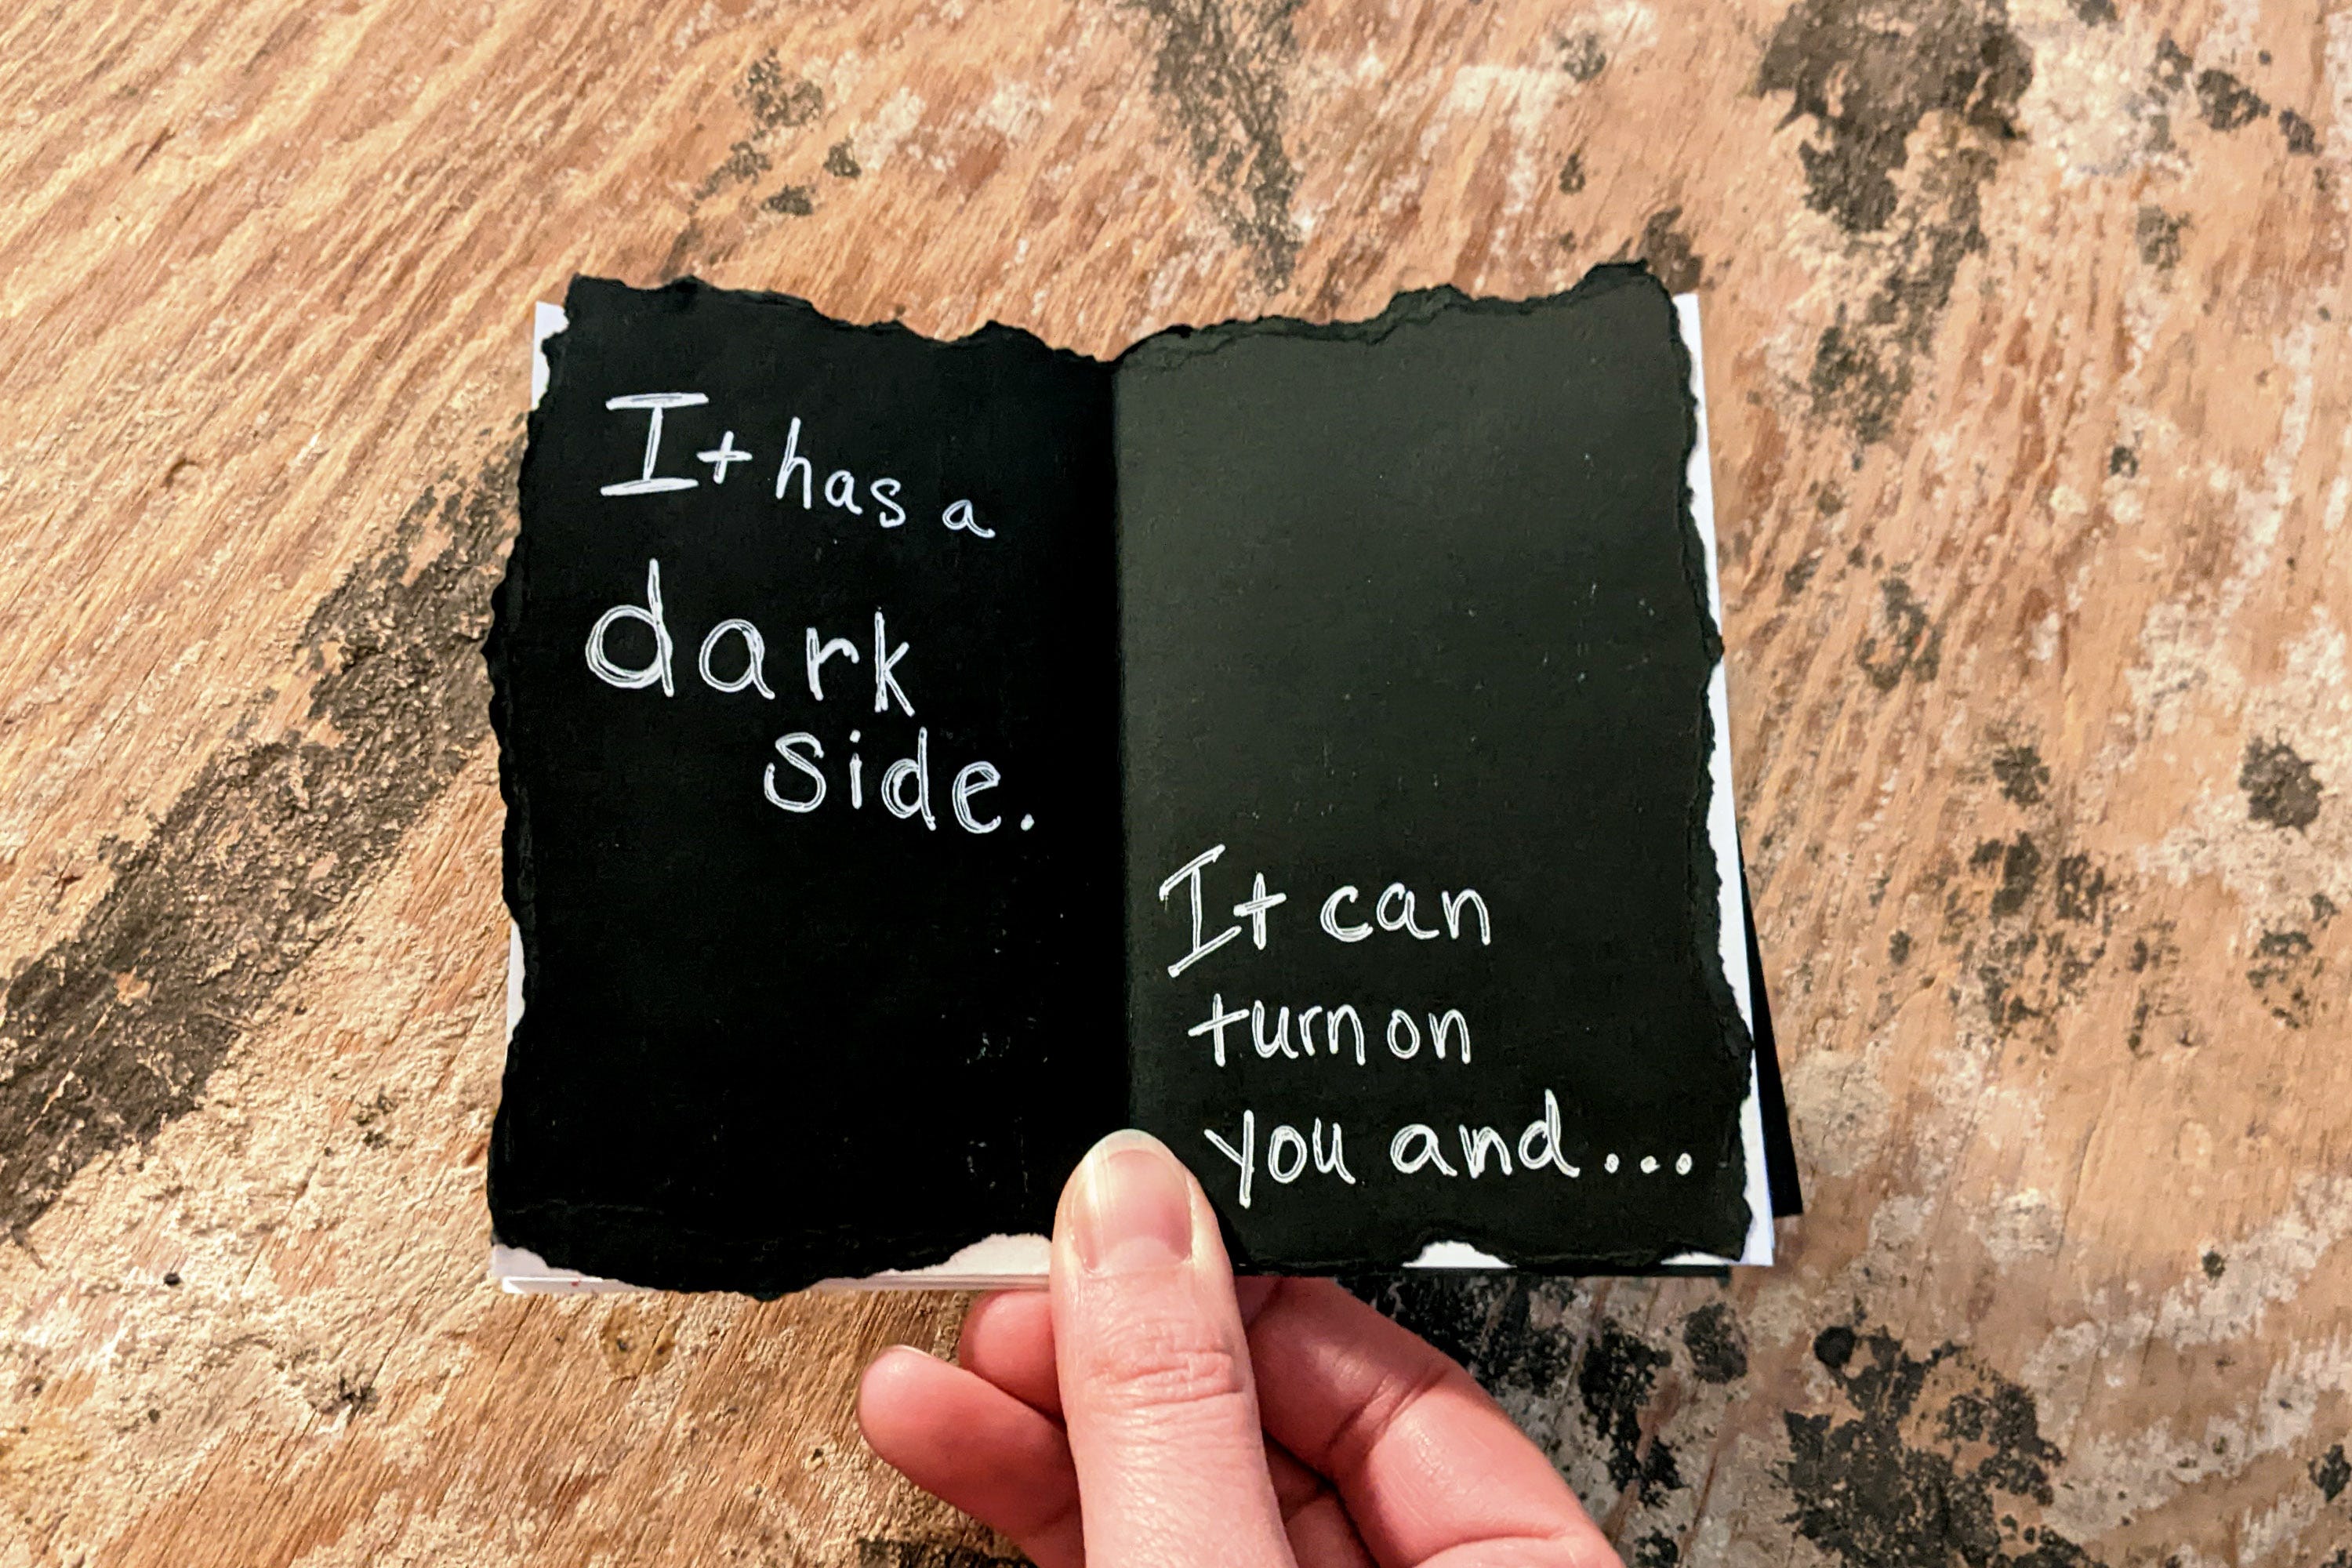 It has a
dark
side.
It can
turn on
you and...